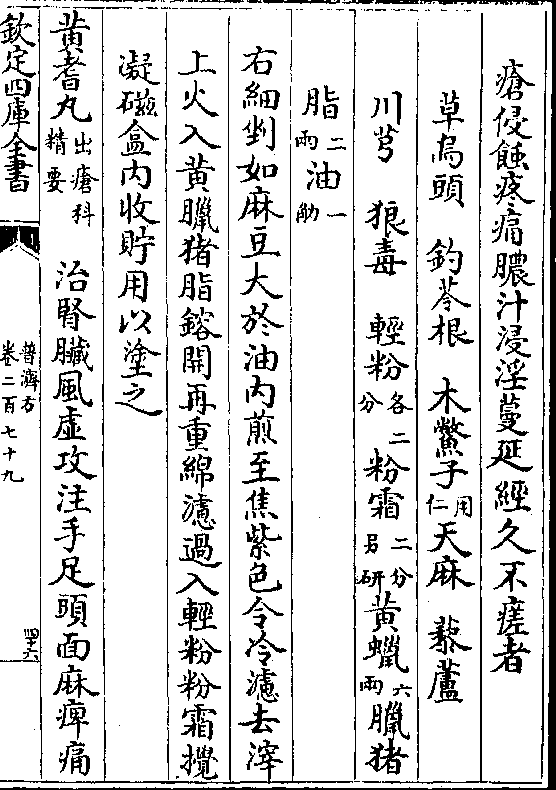 瘡侵蝕疼痛膿汁浸淫蔓延經久不瘥者
草烏頭　釣苓根　木鱉子用仁天麻　藜蘆
川芎　狼毒　輕粉各二分粉霜二分另研黄蠟六兩臘猪
脂二兩油一觔
右細剉如麻豆大於油内煎至焦紫色令冷濾去滓
上火入黄臘猪脂鎔開再重綿濾過入輕粉粉霜攪
凝磁盒内收貯用以塗之
黄耆丸出瘡科精要　治腎臟風虛攻注手足頭面麻痺痛
欽定四庫全書
普濟方
卷二百七十九
四十六